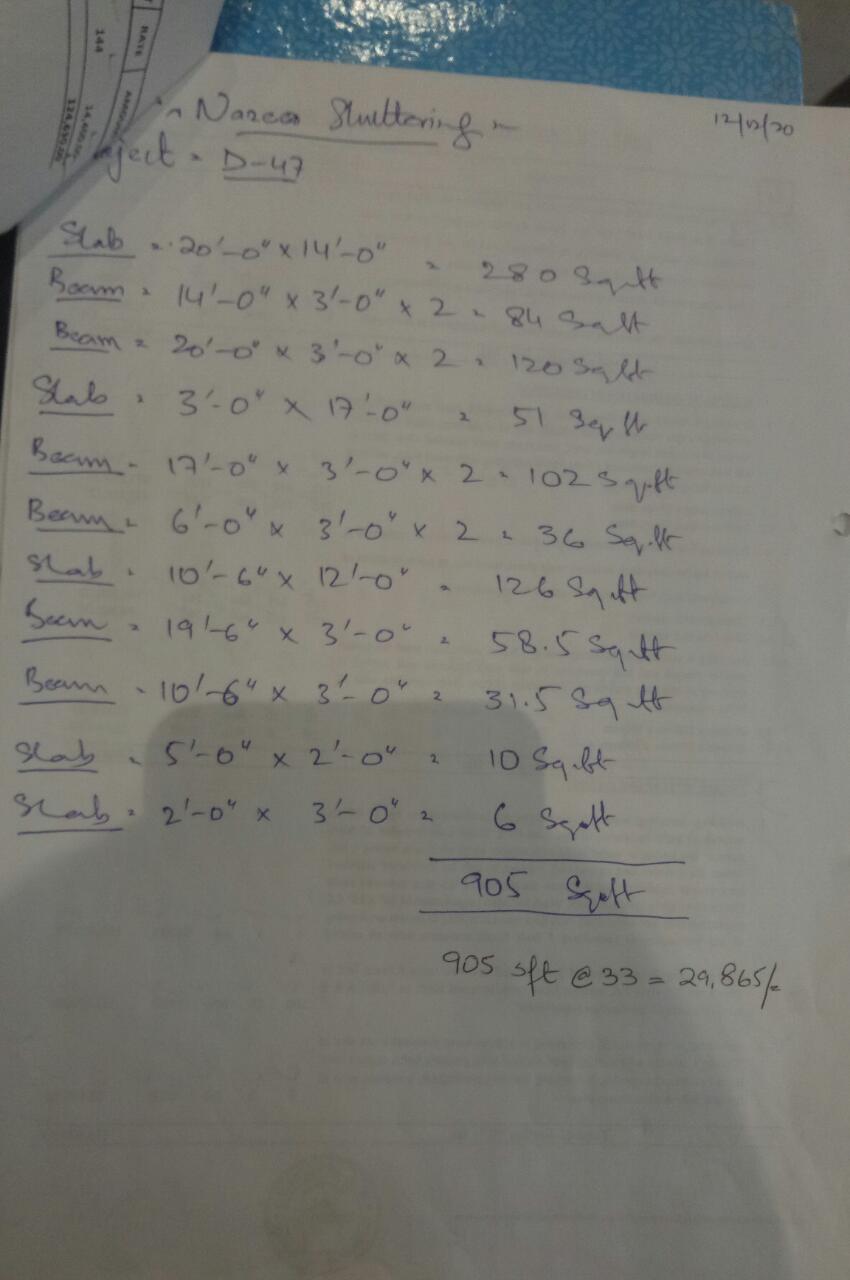 RATE
144
AMOUNT
14,400.00
124,630.00
12/12/20
Shuttering
ject = D-47
Slab = 20'-0" x 14'-0" = 280 Sq.ft
Beam = 14'-0" x 3'-0" x 2 = 84 Sq.ft
Beam = 20'-0" x 3'-0" x 2 = 120 Sq.ft
Slab = 3'-0" x 17'-0" = 51 Sq.ft
Beam = 17'-0" x 3'-0" x 2 = 102 Sq.ft
Beam = 6'-0" x 3'-0" x 2 = 36 Sq.ft
Slab = 10'-6" x 12'-0" = 126 Sq.ft
Beam = 19'-6" x 3'-0" = 58.5 Sq.ft
Beam = 10'-6" x 3'-0" = 31.5 Sq.ft
Slab = 5'-0" x 2'-0" = 10 Sq.ft
Slab = 2'-0" x 3'-0" = 6 Sq.ft
905 Sq.ft
905 sft @ 33 = 29,865/=